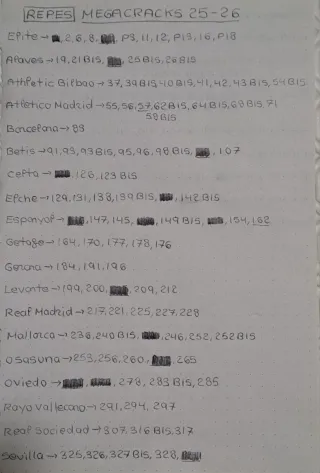 REPES MEGACRACKS 25-26
Elite → 2, 6, 8, P3, 11, 12, P13, 16, P18
Alaves → 19, 21 BIS, 25 BIS, 26 BIS
Athletic Bilbao → 37, 39 BIS, 40 BIS, 41, 42, 43 BIS, 54 BIS
Atletico Madrid → 55, 56, 57, 62 BIS, 64 BIS, 68 BIS, 71
58 BIS
Barcelona → 89
Betis → 91, 93, 93 BIS, 95, 96, 98 BIS, 107
Celta → 126, 123 BIS
Elche → 129, 131, 138, 139 BIS, 142 BIS
Espanyol → 147, 145, 149 BIS, 154, 162
Getafe → 164, 170, 177, 178, 176
Gerona → 184, 191, 196
Levante → 199, 200, 209, 212
Real Madrid → 217, 221, 225, 227, 228
Mallorca → 236, 240 BIS, 246, 252, 252 BIS
Osasuna → 253, 256, 260, 265
Oviedo → 278, 283 BIS, 285
Rayo Vallecano → 291, 294, 297
Real Sociedad → 307, 316 BIS, 317
Sevilla → 325, 326, 327 BIS, 328,